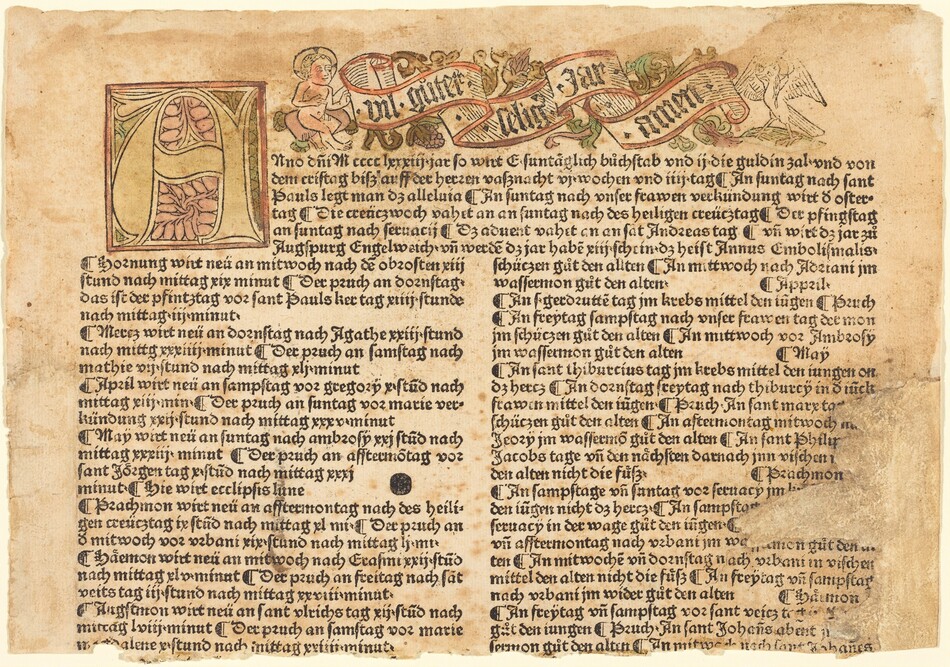 vil gůter selig Jar amen
Anno dñi M cccc lxxxiij·jar so wirt E·suntäglich bůchstab vnd ij·die guldin zal·vnd von
dem cristag bisz auff der herren vasznacht vj·wochen vnd iiij·tag¶ An suntag nach sant
Pauls legt man dz alleluia ¶ An suntag nach vnser frawen verkündung wirt d᷑ oster-
tag ¶ Die creüczwoch vahet an an suntag nach des heiligen creücztag¶ Der pfingstag
an suntag nach seruacij ¶ Dz aduent vahet an an sāt Andreas tag ¶ vñ wirt dz jar zů
Augspurg Engelweich·vñ werdē dz jar habē xiij·schein·dz heist Annus Embolismalis·
¶ Hornung wirt neü an mitwoch nach dē obrosten xiij
stund nach mittag xix minut ¶ Der pruch an dornstag·
das ist der pfintztag vor sant Pauls ker tag xiiij·stunde
nach mittag·ij·minut·
¶ Mercz wirt neü an dornstag nach Agathe xxiij·stund
nach mittg xxxiiij·minut ¶ Der pruch an samstag nach
mathie vij·stund nach mittag xlj·minut
¶ April wirt neü an sampstag vor gregorÿ x·stūd nach
mittag xiij·min·¶ Der pruch an suntag vor marie ver-
kündung xxij·stund nach mittag xxxv·minut
¶ May wirt neü an suntag nach ambrosÿ xxj stūd nach
mittag xxxiij· minut ¶ Der pruch an afftermōtag vor
sant Jörgen tag x·stūd nach mittag xxxj
minut·¶ Hie wirt ecclipsis lune
¶ Prachmon wirt neü an afftermontag nach des heili-
gen creücztag ix stūd nach mittag xl mi·¶ Der pruch an
d᷑ mitwoch vor vrbani xix·stund nach mittag lj·mi·
¶ Häemon wirt neü an mitwoch nach Erasmi xxij·stūd
nach mittag xlv·minut¶ Der pruch an freitag nach sāt
veits tag iij·stund nach mittag xxviij·minut·
¶ Augstmon wirt neü an sant vlrichs tag xij·stūd nach
mittag lviij·minut ¶ Der pruch an samstag vor marie
magdalene x·stund nach mittag xxiiij·minut·
schüczen gůt den allten ¶ An mittwoch nach Adriani jm
wassermon gůt den alten·
¶ Appril·
¶ An s·gerdrutten tag jm krebs mittel den iūgen ¶ Pruch
¶ An freytag sampstag nach vnser frawen tag der mon
jm schüczen gůt den alten ¶ An mittwoch vor Ambrosÿ
jm wassermon gůt den alten
¶ May
¶ An sant thiburcius tag jm krebs mittel den iungen on
dz hercz ¶ An dornstag freytag nach thiburcÿ in d᷑ iūck
frawen mittel den iūgen·¶ Pruch·An sant marx
schüczen gůt den alten ¶ An aftermontag mitwoch
Jeorÿ jm wassermō gůt den alten ¶ An sant
Jacobs tage vñ den nächsten darnach jm vischen
den alten nicht die füsz·
¶ Prachmon
¶ An sampstage vñ suntag vor seruacÿ jm
den iūgen nicht dz hercz·¶ An sampstag
seruacÿ in der wage gůt den iūgen·¶
vñ afftermontag nach vrbani jm gůt den
ten ¶ An mitwochē vñ dornstag nach vrbani in vischen
mittel den alten nicht die füsz ¶ An freÿtag vñ sampstag
nach vrbani jm wider gůt den alten
¶ Häemon
¶ An freÿtag vñ sampstag vor veicz
gůt den iungen ¶ Pruch·An sant Johañs abent
sermon gůt den alten ¶ An mitwoch nach sant Johañs